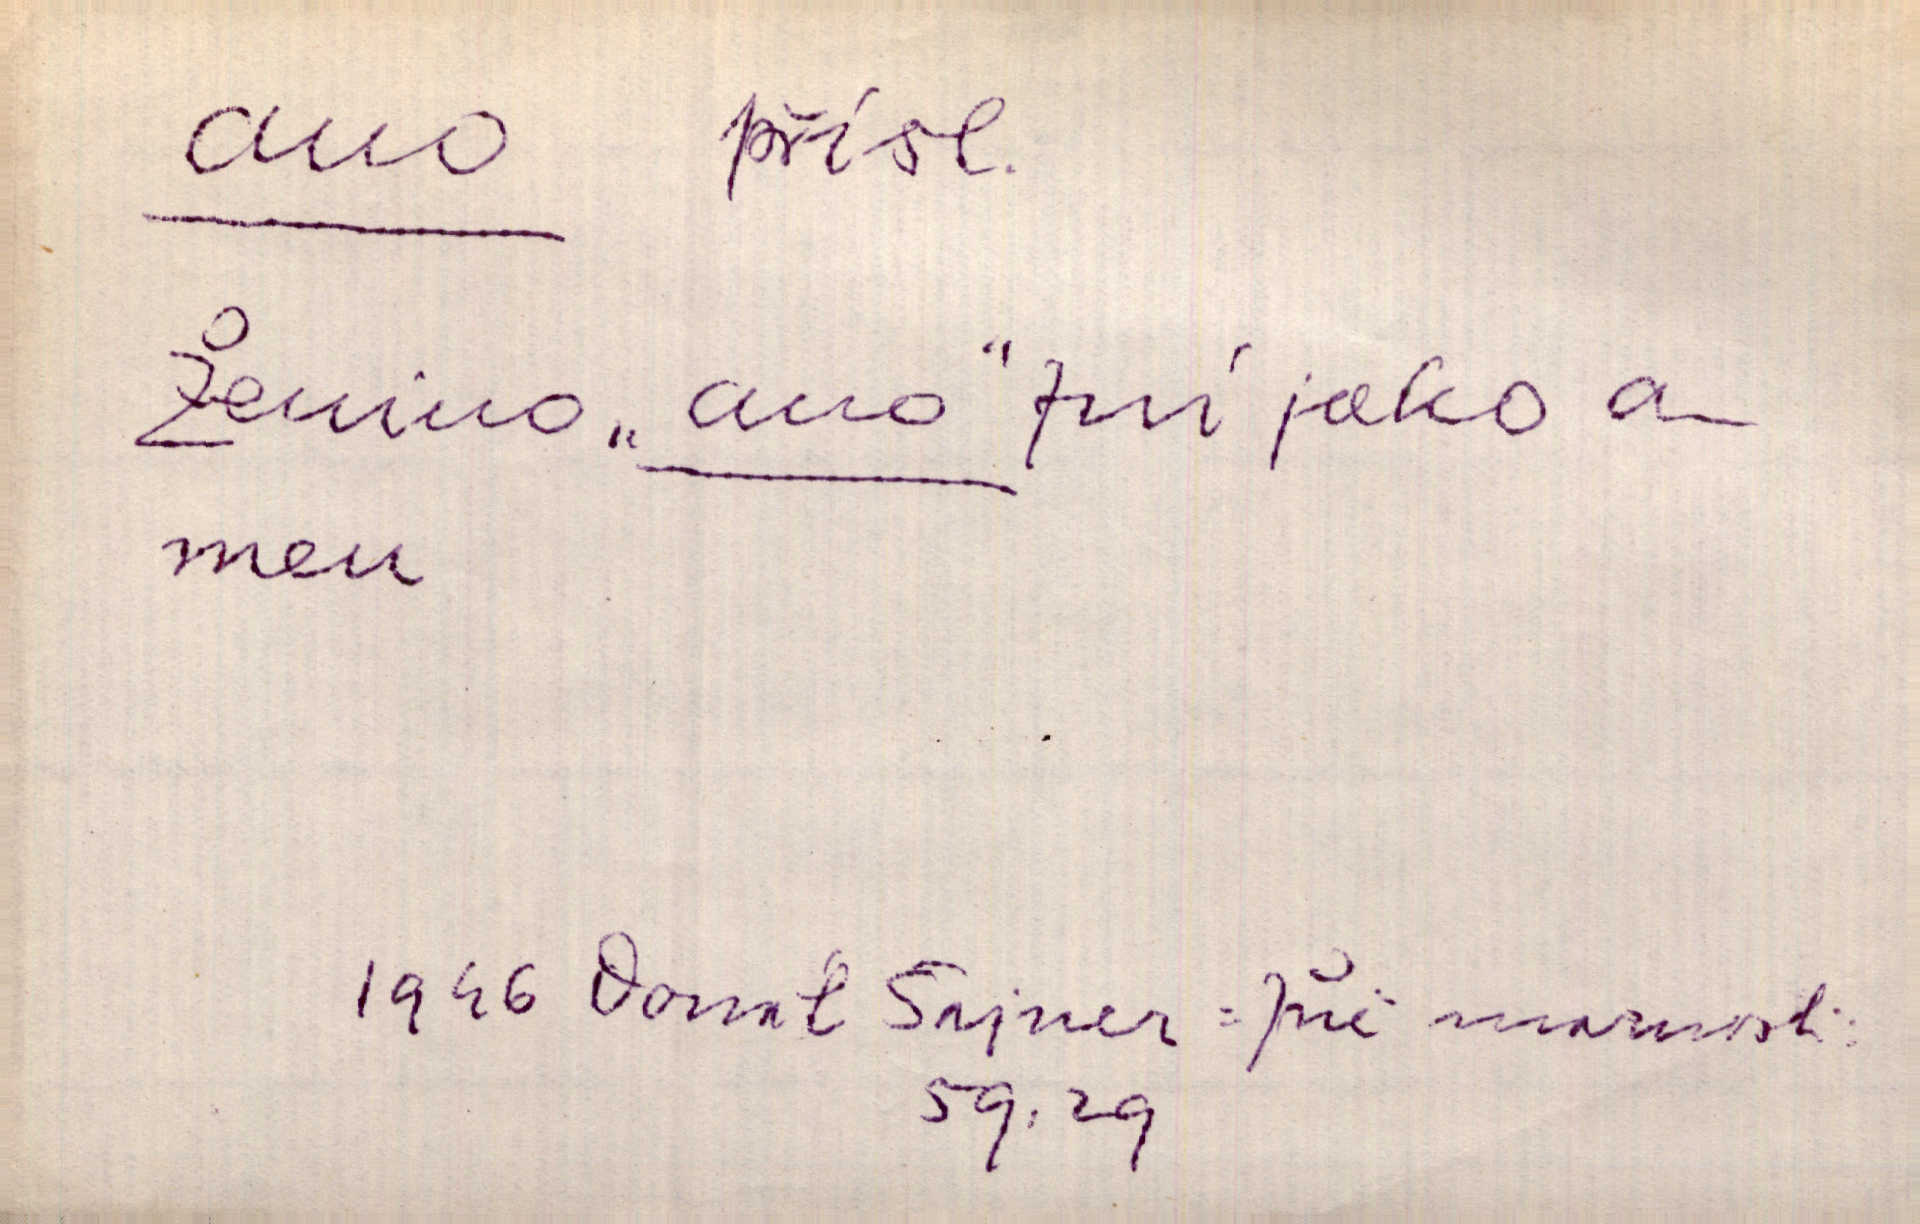 ano přísl.
Ženino „ano" zní jako a-
men
1946 Donát Šajner = Zuř marnosti:
59, 29